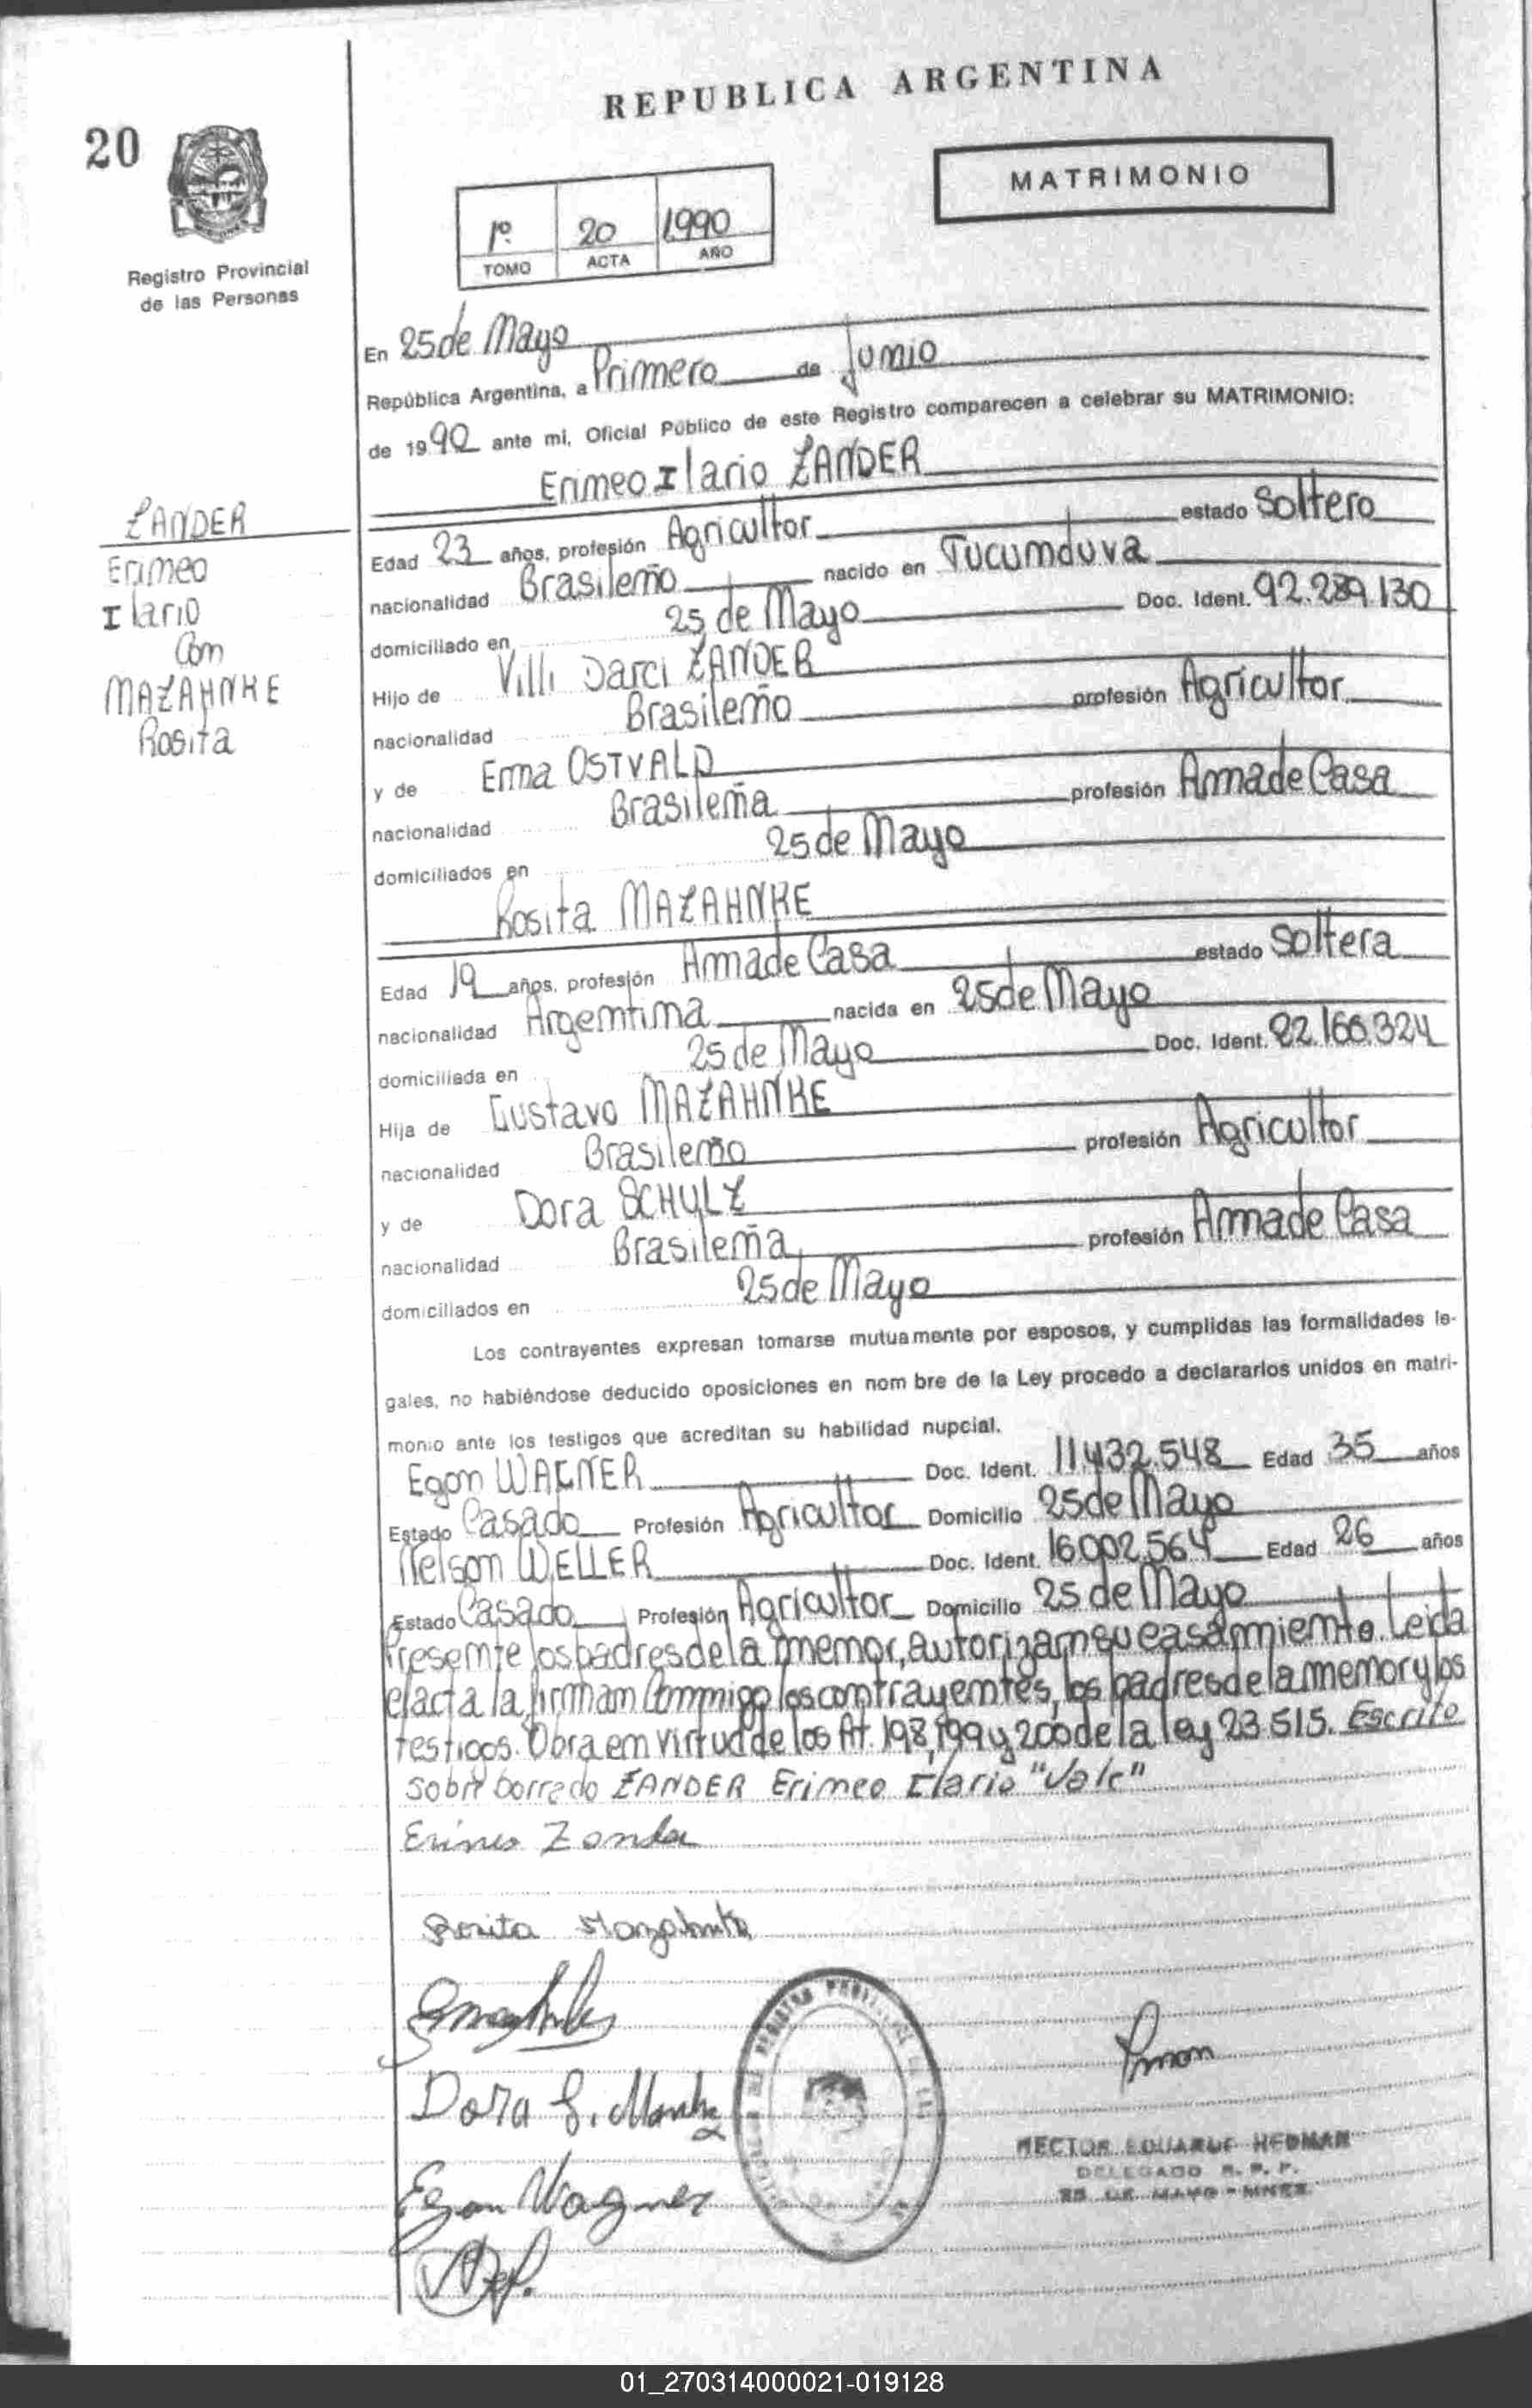 REPUBLICA ARGENTINA
20
MATRIMONIO
1º 20 1990
TOMO ACTA AÑO
Registro Provincial
de las Personas
En 25 de Mayo
República Argentina, a Primero de Junio
de 1990 ante mi, Oficial Público de este Registro comparecen a celebrar su MATRIMONIO:
Erimeo Ilario ZANDER
ZANDER
Erimeo
Ilario
Con
MAZAHNKE
Rosita
Edad 23 años, profesión Agricultor estado Soltero
nacionalidad Brasileño nacido en Tucumduva
domiciliado en 25 de Mayo Doc. Ident. 92.289.130
Hijo de Villi Darci ZANDER
nacionalidad Brasileño profesión Agricultor
y de Erma OSTVALD
nacionalidad Brasileña profesión Ama de Casa
domiciliados en 25 de Mayo
Rosita MAZAHNKE
Edad 19 años, profesión Ama de Casa estado Soltera
nacionalidad Argentina nacida en 25 de Mayo
domiciliada en 25 de Mayo Doc. Ident. 22.166.324
Hija de Gustavo MAZAHNKE
nacionalidad Brasileño profesión Agricultor
y de Dora SCHULZ
nacionalidad Brasileña profesión Ama de Casa
domiciliados en 25 de Mayo
Los contrayentes expresan tomarse mutuamente por esposos, y cumplidas las formalidades le-
gales, no habiéndose deducido oposiciones en nom bre de la Ley procedo a declararlos unidos en matri-
monio ante los testigos que acreditan su habilidad nupcial.
Egon WAGNER Doc. Ident. 11.432.548 Edad 35 años
Estado Casado Profesión Agricultor Domicilio 25 de Mayo
Nelson WELLER Doc. Ident. 16.002.564 Edad 26 años
Estado Casado Profesión Agricultor Domicilio 25 de Mayo
Presente los padres de la menor, autorizan su casamiento. Leida
el acta la firman Conmigo los contrayentes, los padres de la menor y los
testigos. Obra en virtud de los At. 198, 199 y 200 de la ley 23.515. Escrito
sobre borrado ZANDER Erimeo Ilario "Vale"
Erineo Zander
Rosita
Dora S.
Egon Wagner
HECTOR EDUARDO HEDMAN
DELEGADO R. P. P.
25 DE MAYO - MNES.
01_270314000021-019128